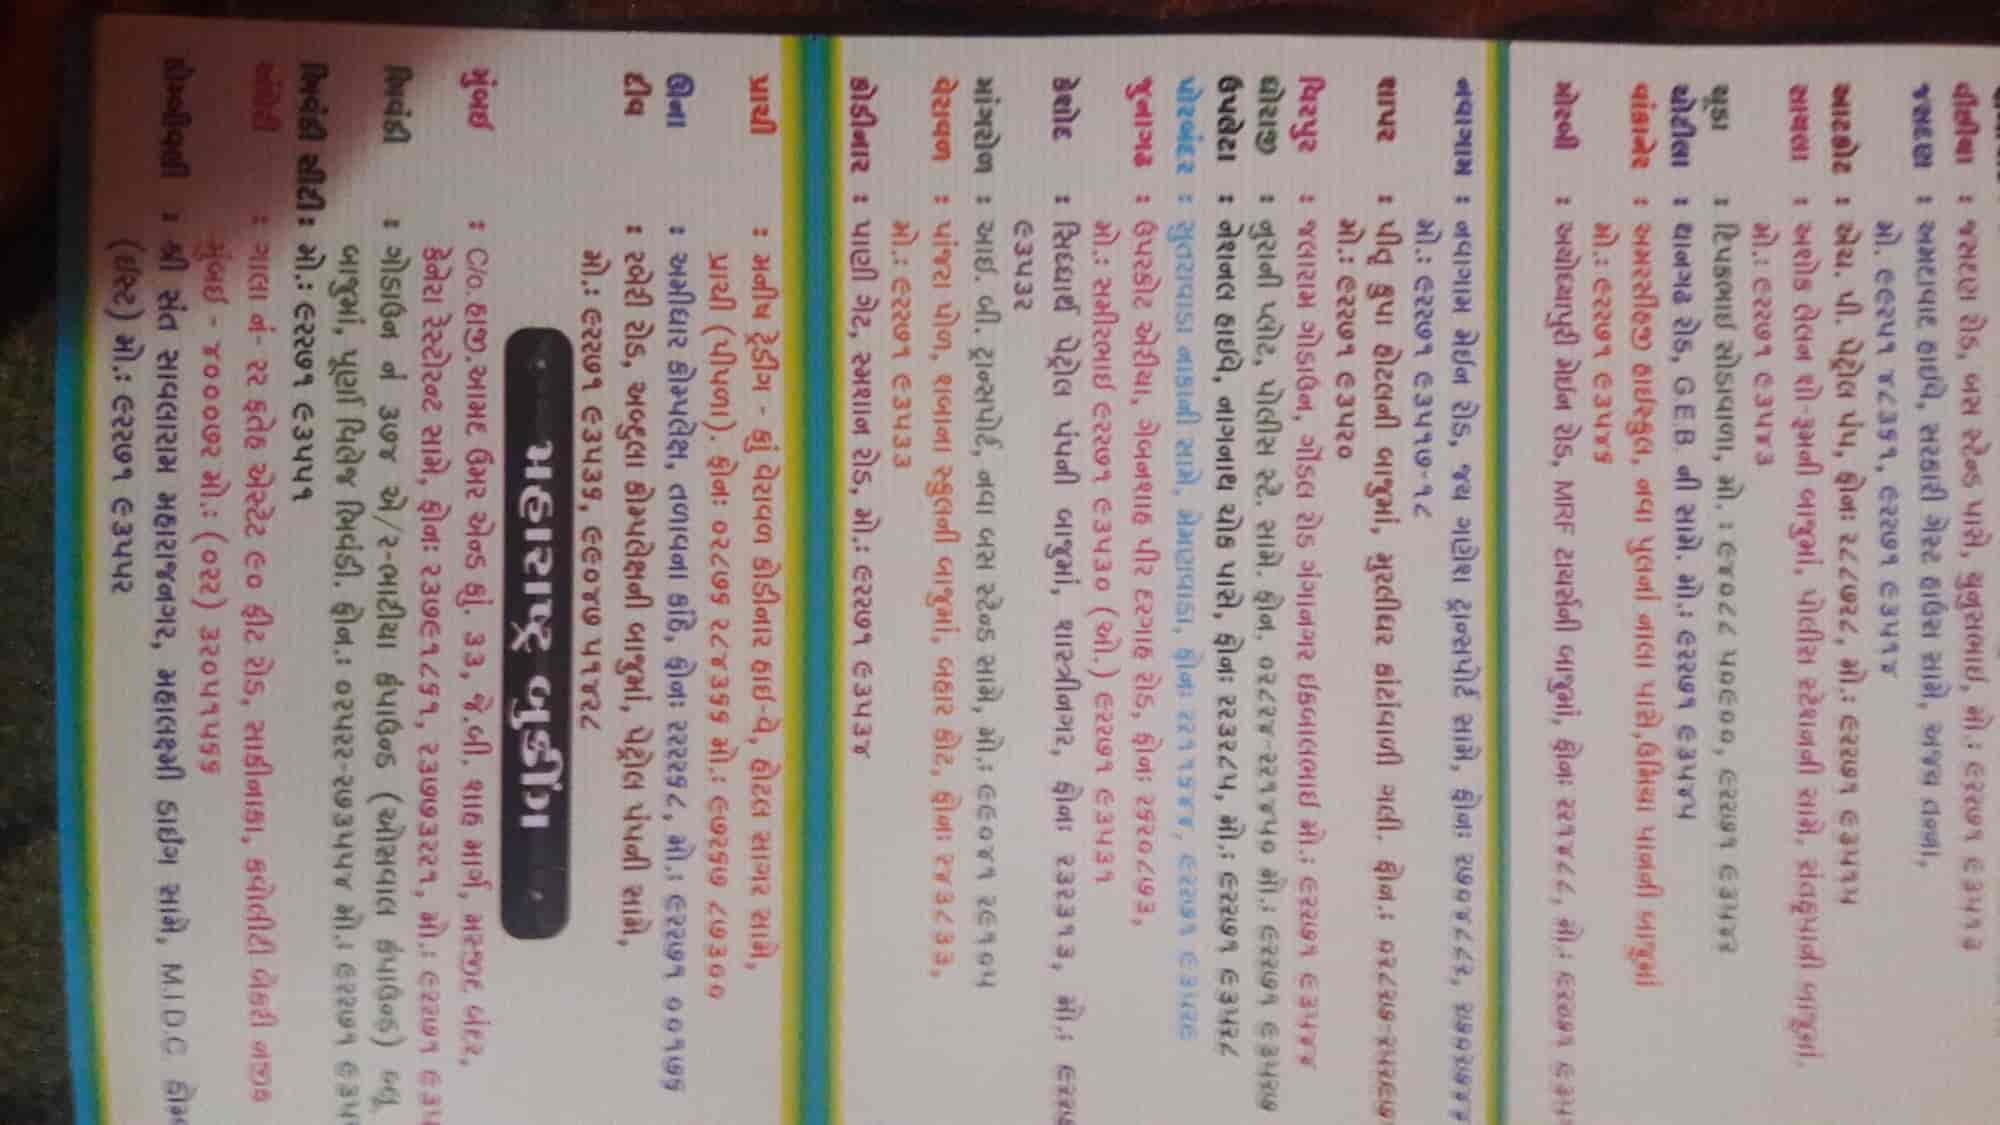 વીંછીયા : જસદણ રોડ, બસ સ્ટેન્ડ પાસે, મો.: ૯૨૨૭૧ ૯૩૫૧૩
જસદણ : અમદાવાદ હાઇવે, સરકારી ગેસ્ટ હાઉસ સામે,
મો. ૯૯૨૫૧ ૪૮૩૬૧, ૯૨૨૭૧ ૯૩૫૧૪
આટકોટ : એચ. પી. પેટ્રોલ પંપ, ફોનઃ ૨૮૮૭૨૮, મો.: ૯૨૨૭૧ ૯૩૫૧૫
સાયલા : અશોક લેલન શો-રૂમની બાજુમાં, પોલીસ સ્ટેશનની સામે,
મો.: ૯૨૨૭૧ ૯૩૫૪૩
ચૂડા : દિપકભાઇ સોડાવાળા, મો. : ૯૪૦૮૮ ૫૦૯૦૦, ૯૨૨૭૧ ૯૩૫૪૨
ચોટીલા : થાનગઢ રોડ, G.E.B. ની સામે. મો.: ૯૨૨૭૧ ૯૩૫૪૫
વાંકાનેર : અમરસીંહજી હાઇસ્કુલ, નવા પુલના નાલા પાસે, ઉમિયા પાનની બાજુમાં
મો.: ૯૨૨૭૧ ૯૩૫૪૬
મોરબી : અયોધ્યાપુરી મેઇન રોડ, MRF ટાયર્સની બાજુમાં, ફોનઃ ૨૨૧૪૮૮, મો.: ૯૨૨૭૧ ૯૩૫
નવાગામ : નવાગામ મેઇન રોડ, જય ગણેશ ટ્રાન્સપોર્ટ સામે, ફોનઃ ૨૭૦૪૮૮૨,
મો.: ૯૨૨૭૧ ૯૩૫૧૭-૧૮
શાપર : પીતૃ કૃપા હોટલની બાજુમાં, મુરલીધર કાંટાવાળી ગલી. ફોન.:
મો.: ૯૨૨૭૧ ૯૩૫૨૦
વિરપુર : જલારામ ગોડાઉન, ગોંડલ રોડ ગંગાનગર ઇકબાલભાઇ મો.: ૯૨૨૭૧ ૯૩૫૪૪
ધોરાજી : નુરાની પ્લોટ, પોલીસ સ્ટે. સામે. ફોન. ૦૨૮૨૪-૨૨૧૪૫૦ મો.: ૯૨૨૭૧ ૯૩૫૨૭
ઉપલેટા : નેશનલ હાઇવે, નાગનાથ ચોક પાસે, ફોનઃ ૨૨૩૨૮૫, મો.: ૯૨૨૭૧ ૯૩૫૨૮
પોરબંદર : સુતારવાડા નાકાની સામે, મેમણવાડા, ફોનઃ ૨૨૧૧૬૪૪, ૯૨૨૭૧ ૯૩૫૨૯
જુનાગઢ : ઉપરકોટ એરીયા, ગેબનશાહ પીર દરગાહ રોડ, ફોનઃ ૨૬૨૦૮૭૩,
મો.: સમીરભાઇ ૯૨૨૭૧ ૯૩૫૩૦ (ઓ.) ૯૨૨૭૧ ૯૩૫૩૧
કેશોદ : સિદ્ધાર્થ પેટ્રોલ પંપની બાજુમાં, શાસ્ત્રીનગર, ફોનઃ ૨૩૨૩૧૩, મો.: ૯૨૨૭
૯૩૫૩૨
માંગરોળ : આઇ. બી. ટ્રાન્સપોર્ટ, નવા બસ સ્ટેન્ડ સામે, મો.: ૯૯૦૪૧ ૨૯૧૦૫
વેરાવળ : પાંજરા પોળ, શબાના સ્કુલની બાજુમાં, બહાર કોટ, ફોનઃ ૨૪૩૮૩૩,
મો.: ૯૨૨૭૧ ૯૩૫૩૩
કોડીનાર : પાણી ગેટ, સ્મશાન રોડ, મો.: ૯૨૨૭૧ ૯૩૫૩૪
પ્રાચી : મનીષ ટ્રેડીંગ - કું વેરાવળ કોડીનાર હાઇ-વે, હોટલ સાગર સામે,
પ્રાચી (પીપળા). ફોનઃ ૦૨૮૭૬ ૨૮૪૩૬૧ મો.: ૯૭૨૬૭ ૮૭૩૦૦
ઊના : અમીધાર કોમ્પલેક્ષ, તળાવના કાંઠે, ફોનઃ ૨૨૨૬૮, મો.: ૯૨૨૭૧ ૦૦૧૭૬
દીવ : રબરી રોડ, અબ્દુલા કોમ્પલેક્ષની બાજુમાં, પેટ્રોલ પંપની સામે,
મો.: ૯૨૨૭૧ ૯૩૫૩૬, ૯૯૦૪૭ ૫૧૪૨૮
મહારાષ્ટ્ર બુકીંગ
મુંબઇ : C/o. હાજી.આમદ ઉમર એન્ડ કું. ૩૩, જે.બી. શાહ માર્ગ, મસ્જીદ બંદર,
કેનેરા રેસ્ટોરન્ટ સામે, ફોનઃ ૨૩૭૯૧૮૬૧, ૨૩૭૭૩૨૨૧, મો.: ૯૨૨૭૧ ૯૩૫
ભિવંડી : ગોડાઉન નં ૩૭૪ એ/૨-ભાટીયા કંપાઉન્ડ (ઓસવાલ કંપાઉન્ડ)
બાજુમાં, પૂર્ણા વિલેજ ભિવંડી. ફોન.: ૦૨૫૨૨-૨૭૩૫૫૪ મો.: ૯૨૨૭૧ ૯૩૫
ભિવંડી સીટી: મો.: ૯૨૨૭૧ ૯૩૫૫૧
: ગાલા નં- ૨૨ ફતેહ એસ્ટેટ ૯૦ ફીટ રોડ, સાકીનાકા, ક્વોલીટી બેકરી નજીક
મુંબઇ - ૪૦૦૦૭૨ મો.: (૦૨૨) ૩૨૦૫૧૫૬૬
ડોમ્બીવલી : શ્રી સંત સાવલારામ મહારાજનગર, મહાલક્ષ્મી ડાઇંગ સામે, M.I.D.C
(ઇસ્ટ) મો.: ૯૨૨૭૧ ૯૩૫૫૨